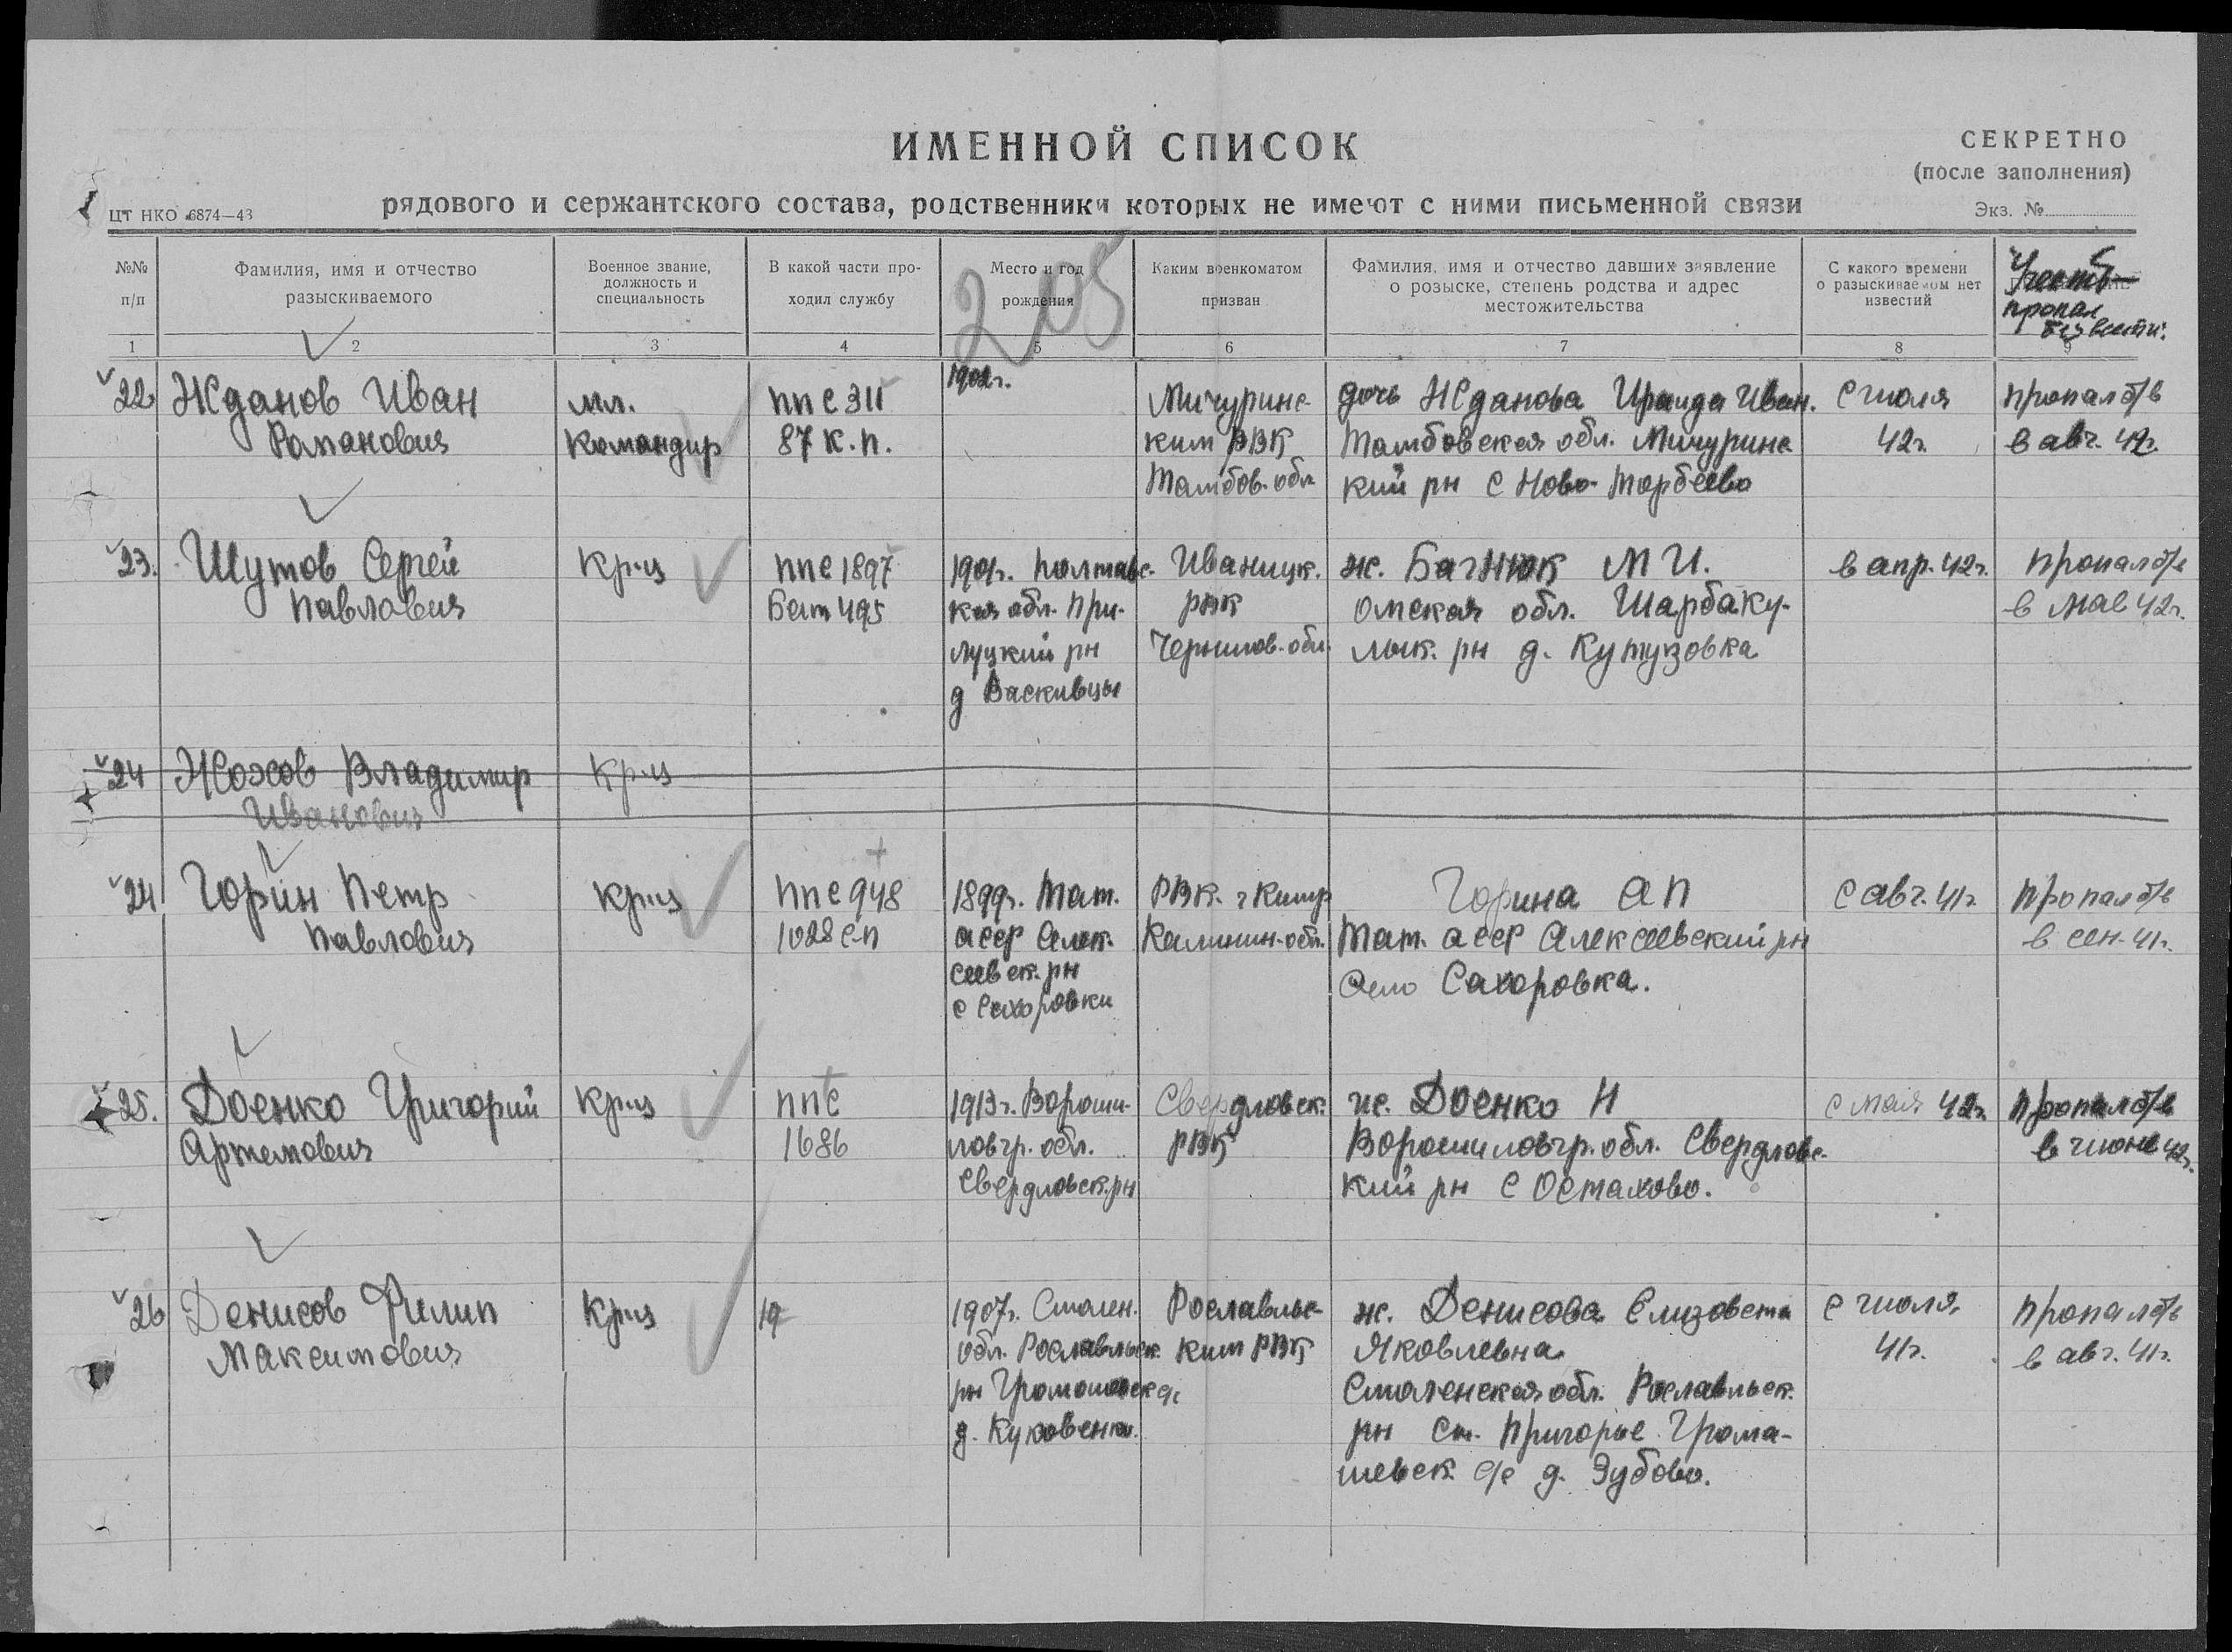 ИМЕННОЙ СПИСОК
СЕКРЕТНО
(после заполнения)
ЦТ НКО 6874—43
рядового и сержантского состава, родственники которых не имеют с ними письменной связи
Экз. №
№№ п/п
Фамилия, имя и отчество разыскиваемого
Военное звание, должность и специальность
В какой части проходил службу
Место и год рождения
Каким военкоматом призван
Фамилия, имя и отчество давших заявление о розыске, степень родства и адрес местожительства
С какого времени о разыскиваемом нет известий
Учесть
пропал
без вести.
205
1 2 3 4 5 6 7 8 9
22 Жданов Иван
Романович
мл.
командир
ппс 311
87 к.п.
1902г.
Мичуринс-
ким РВК
Тамбов. обл
дочь Жданова Ираида Иван.
Тамбовская обл. Мичуринс-
кий рн с Ново-Тарбеево
с июля
42г.
пропал б/в
в авг. 42г.
23. Шутов Сергей
Павлович
Кр-ц
ппс 1897
Бат 495
1901г. Полтавс-
кая обл. При-
луцкий рн
д Васкивцы
Иваницк.
рвк
Чернигов. обл.
ж. Багнюк М И.
Омская обл. Шарбаку-
льск. рн д. Кутузовка
в апр. 42г.
пропал б/в
в мае 42г.
24 Жохов Владимир
Иванович
Кр-ц
24 Горин Петр
Павлович
кр-ц
ппс 948
1028 с-п
1899г. Тат.
асср Алек-
сеевск. рн
с Сахоровки
РВК. г Кимр
Калинин. обл.
Горина А П
Тат. асср Алексеевский рн
село Сахоровка.
с авг. 41г.
пропал б/в
в сен. 41г.
25. Доенко Григорий
Артемович
Кр-ц
ппс
1686
1913г. Вороши-
ловгр. обл.
Свердловск. рн
Свердловск.
РВК
ж. Доенко Н
Ворошиловгр. обл. Свердловс-
кий рн с Остахово.
с мая 42г.
пропал б/в
в июне 42г.
26 Денисов Филип
Максимович
Кр-ц
19
1907г. Смолен.
обл. Рославльск.
рн с/с
д. Куковенки.
Рославльс-
ким РВК
ж. Денисова Елизовета
Яковлевна
Смоленская обл. Рославльск.
рн ст. Пригорье Грома-
шевск с/с д. Зубово.
с июля
41г.
пропал б/в
в авг. 41г.